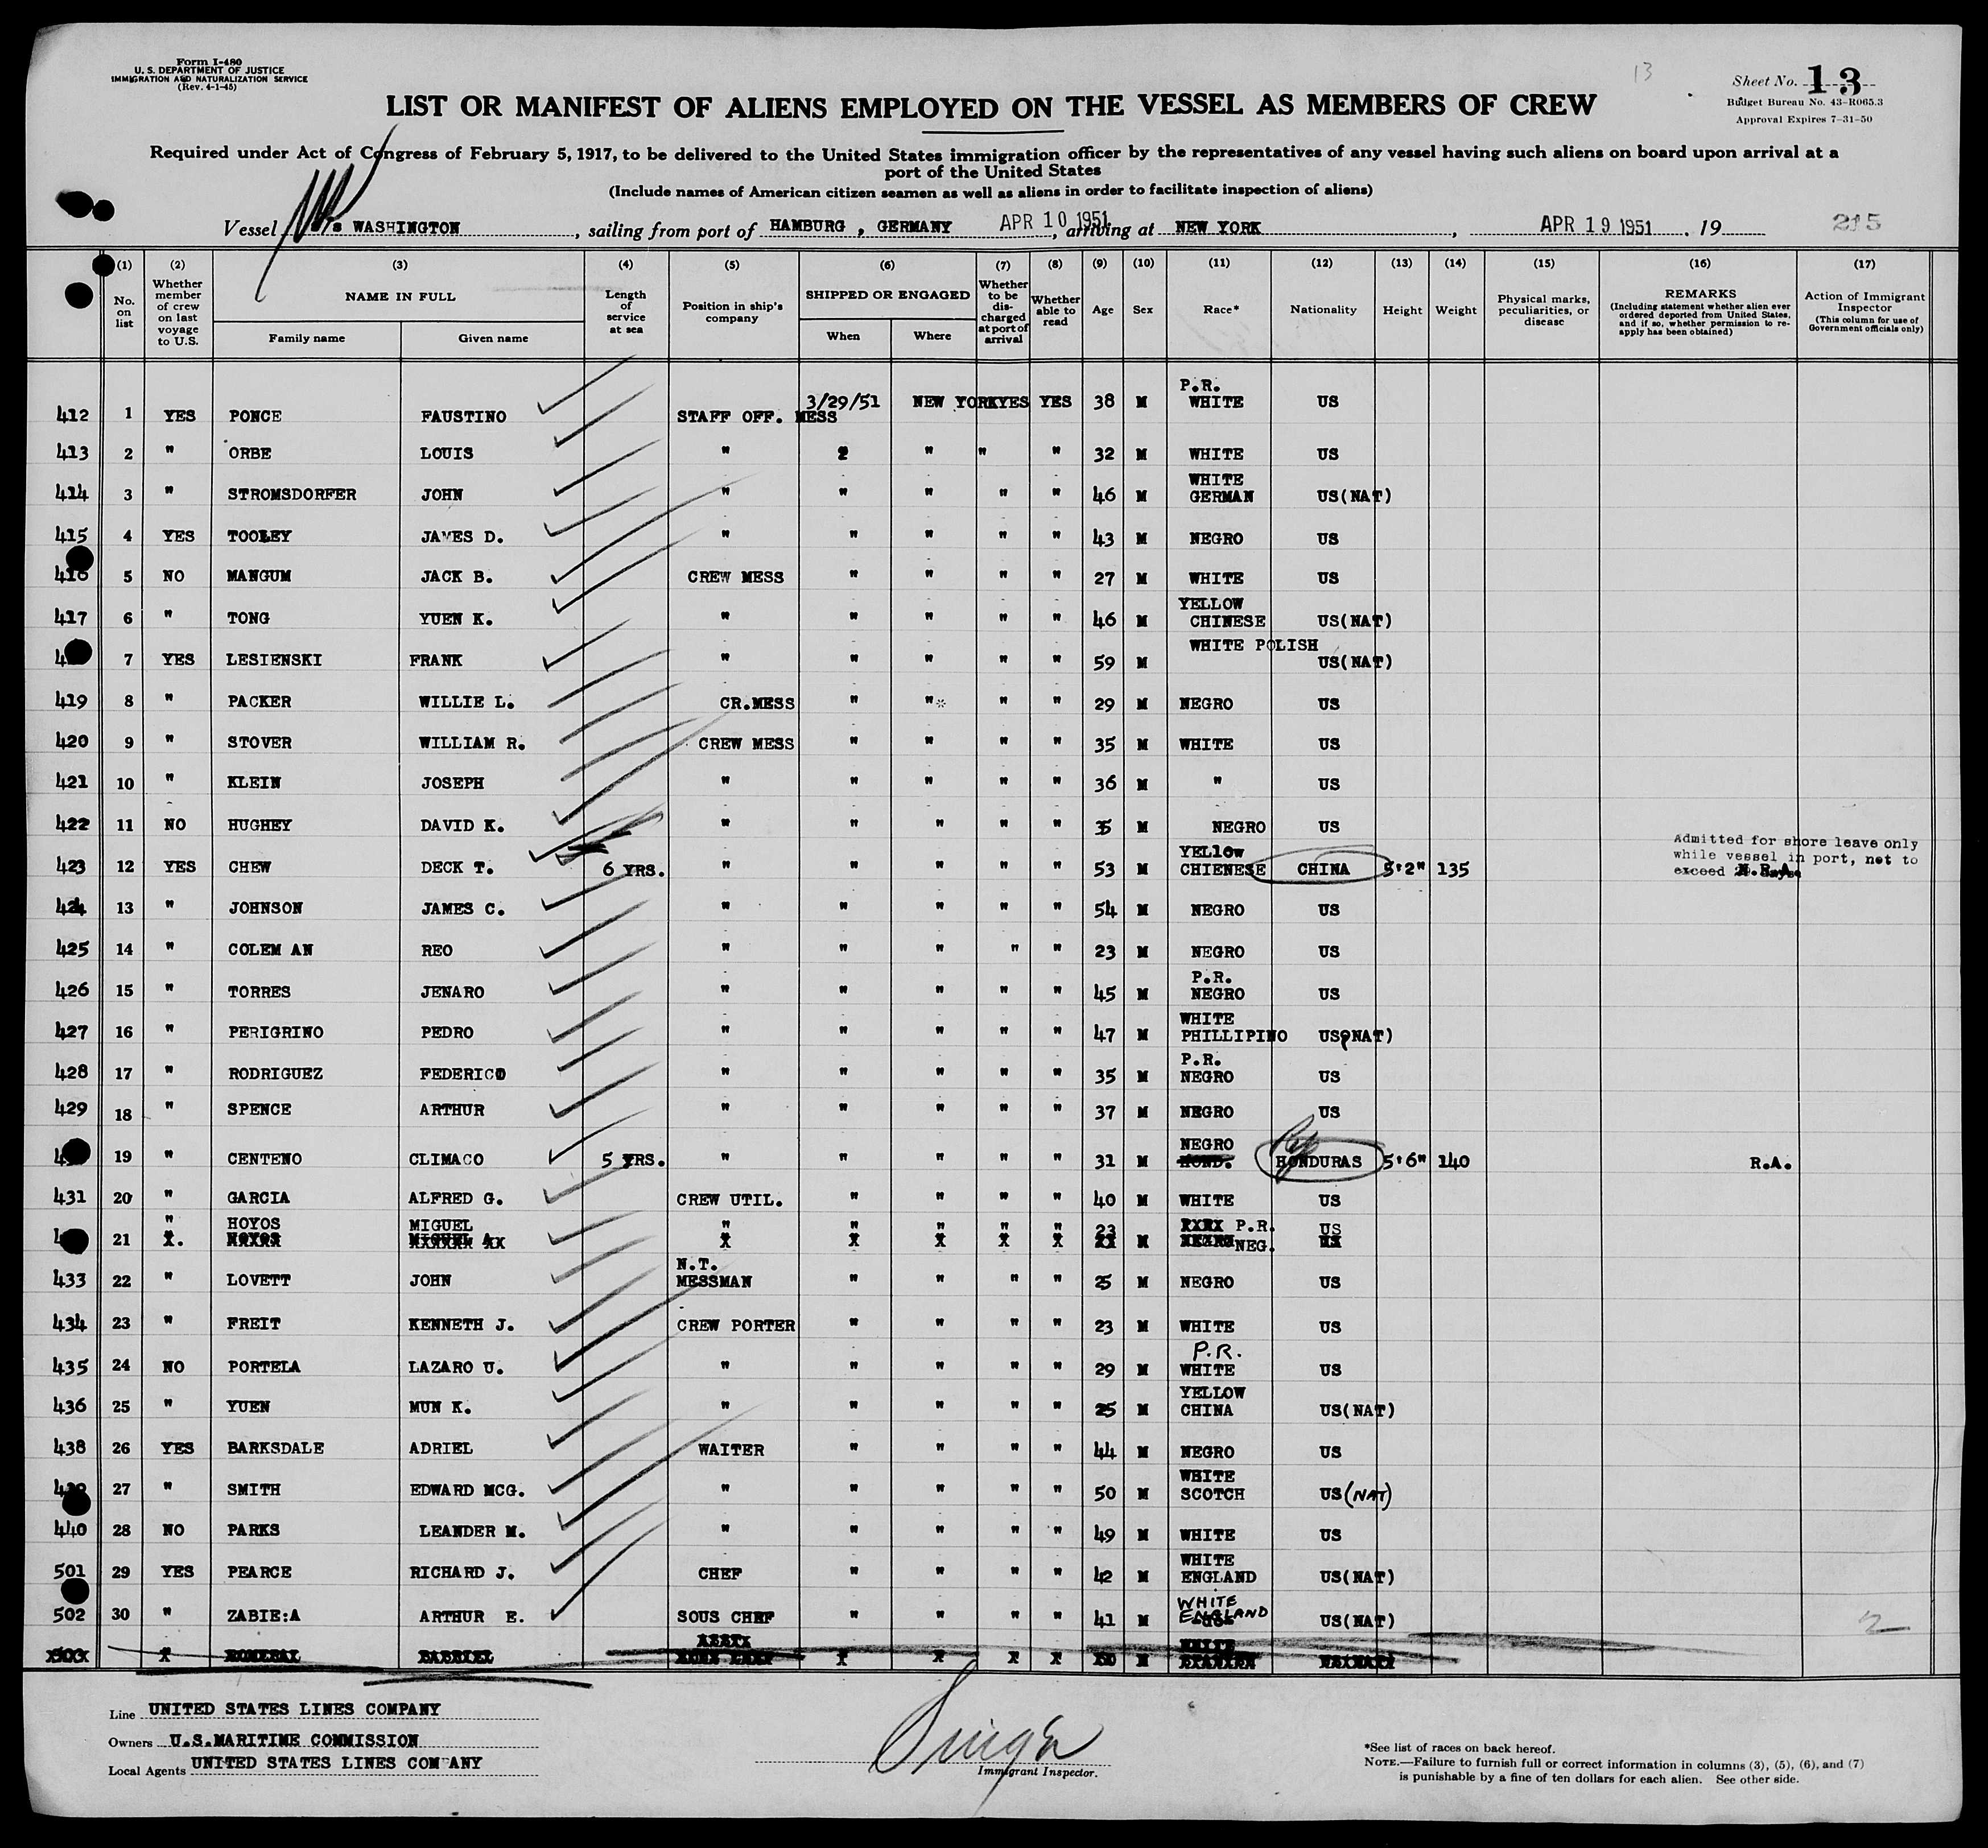 Form I-480
U. S. DEPARTMENT OF JUSTICE
IMMIGRATION AND NATURALIZATION SERVICE
(Rev. 4-1-45)
13
Sheet No. 13
Budget Bureau No. 43-R065.3
Approval Expires 7-31-50
LIST OR MANIFEST OF ALIENS EMPLOYED ON THE VESSEL AS MEMBERS OF CREW
Required under Act of Congress of February 5, 1917, to be delivered to the United States immigration officer by the representatives of any vessel having such aliens on board upon arrival at a
port of the United States
(Include names of American citizen seamen as well as aliens in order to facilitate inspection of aliens)
Vessel WASHINGTON, sailing from port of HAMBURG, GERMANY APR 10 1951, arriving at NEW YORK, APR 19 1951, 19 215
(1) No. on list (2) Whether member of crew on last voyage to U.S. (3) NAME IN FULL Family name Given name (4) Length of service at sea (5) Position in ship's company (6) SHIPPED OR ENGAGED When Where (7) Whether to be discharged at port of arrival (8) Whether able to read (9) Age (10) Sex (11) Race* (12) Nationality (13) Height (14) Weight (15) Physical marks, peculiarities, or disease (16) REMARKS (Including statement whether alien ever ordered deported from United States, and if so, whether permission to reapply has been obtained) (17) Action of Immigrant Inspector (This column for use of Government officials only)
412 1 YES PONCE FAUSTINO STAFF OFF. MESS 3/29/51 NEW YORK YES YES 38 M P.R. WHITE US
413 2 " ORBE LOUIS " " " " 32 M WHITE US
414 3 " STROMSDORFER JOHN " " " " " 46 M WHITE GERMAN US(NAT)
415 4 YES TOOLEY JAMES D. " " " " " 43 M NEGRO US
416 5 NO MANGUM JACK B. CREW MESS " " " " 27 M WHITE US
417 6 " TONG YUEN K. " " " " " 46 M YELLOW CHINESE US(NAT)
7 YES LESIENSKI FRANK " " " " " 59 M WHITE POLISH US(NAT)
419 8 " PACKER WILLIE L. CR.MESS " " " " 29 M NEGRO US
420 9 " STOVER WILLIAM R. CREW MESS " " " " 35 M WHITE US
421 10 " KLEIN JOSEPH " " " " " 36 M " US
422 11 NO HUGHEY DAVID K. " " " " " 35 M NEGRO US
423 12 YES CHEW DECK T. 6 YRS. " " " " " 53 M YELlow CHIENESE CHINA 5'2" 135 Admitted for shore leave only while vessel in port, not to exceed
424 13 " JOHNSON JAMES C. " " " " " 54 M NEGRO US
425 14 " COLEM AN REO " " " " " 23 M NEGRO US
426 15 " TORRES JENARO " " " " " 45 M P.R. NEGRO US
427 16 " PERIGRINO PEDRO " " " " " 47 M WHITE PHILLIPINO US(NAT)
428 17 " RODRIGUEZ FEDERICO " " " " " 35 M P.R. NEGRO US
429 18 " SPENCE ARTHUR " " " " " 37 M NEGRO US
19 " CENTENO CLIMACO 5 YRS. " " " " " 31 M NEGRO HOND. HONDURAS 5'6" 140 R.A.
431 20 " GARCIA ALFRED G. CREW UTIL. " " " " 40 M WHITE US
21 " HOYOS MIGUEL " " " " " 23 M P.R. NEG. US
433 22 " LOVETT JOHN N.T. MESSMAN " " " " 25 M NEGRO US
434 23 " FREIT KENNETH J. CREW PORTER " " " " 23 M WHITE US
435 24 NO PORTELA LAZARO U. " " " " " 29 M P.R. WHITE US
436 25 " YUEN MUN K. " " " " " 25 M YELLOW CHINA US(NAT)
438 26 YES BARKSDALE ADRIEL WAITER " " " " 44 M NEGRO US
439 27 " SMITH EDWARD MCG. " " " " " 50 M WHITE SCOTCH US(NAT)
440 28 NO PARKS LEANDER M. " " " " " 49 M WHITE US
501 29 YES PEARCE RICHARD J. CHEF " " " " 42 M WHITE ENGLAND US(NAT)
502 30 " ZABIE:A ARTHUR E. SOUS CHEF " " " " 41 M WHITE ENGLAND US(NAT) 2
Line UNITED STATES LINES COMPANY
Owners U.S.MARITIME COMMISSION
Local Agents UNITED STATES LINES COMPANY
Immigrant Inspector.
*See list of races on back hereof.
NOTE.—Failure to furnish full or correct information in columns (3), (5), (6), and (7)
is punishable by a fine of ten dollars for each alien. See other side.